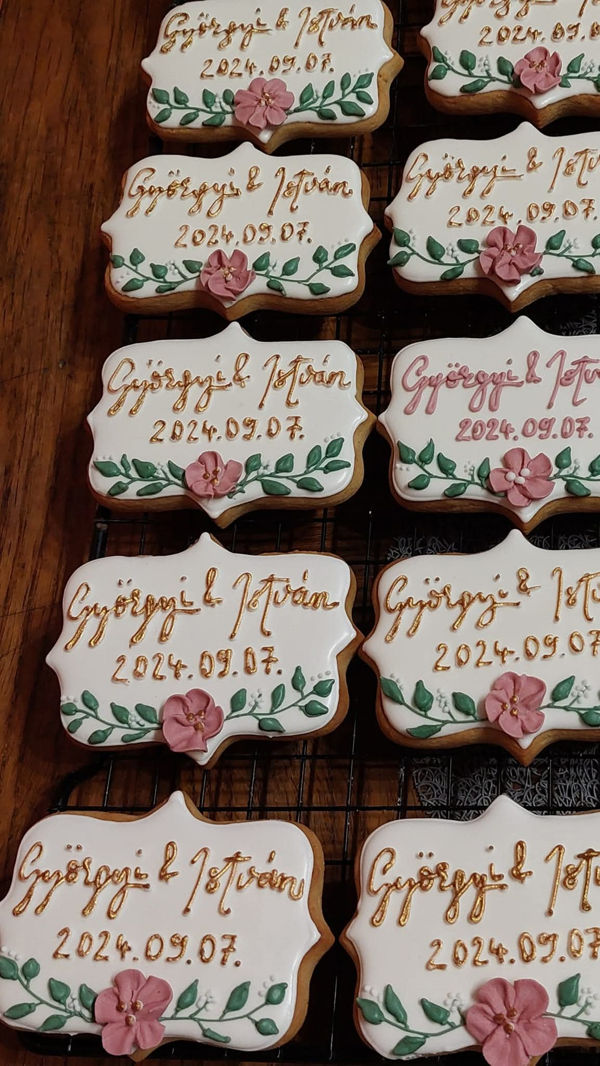 Györgyi & István
2024.09.07.
Györgyi &
2024.09.0
Györgyi & István
2024.09.07.
Györgyi &
2024.09.07.
Györgyi & István
2024.09.07.
Györgyi &
2024.09.07.
Györgyi & István
2024.09.07.
Györgyi &
2024.09.07
Györgyi & István
2024.09.07.
Györgyi &
2024.09.07